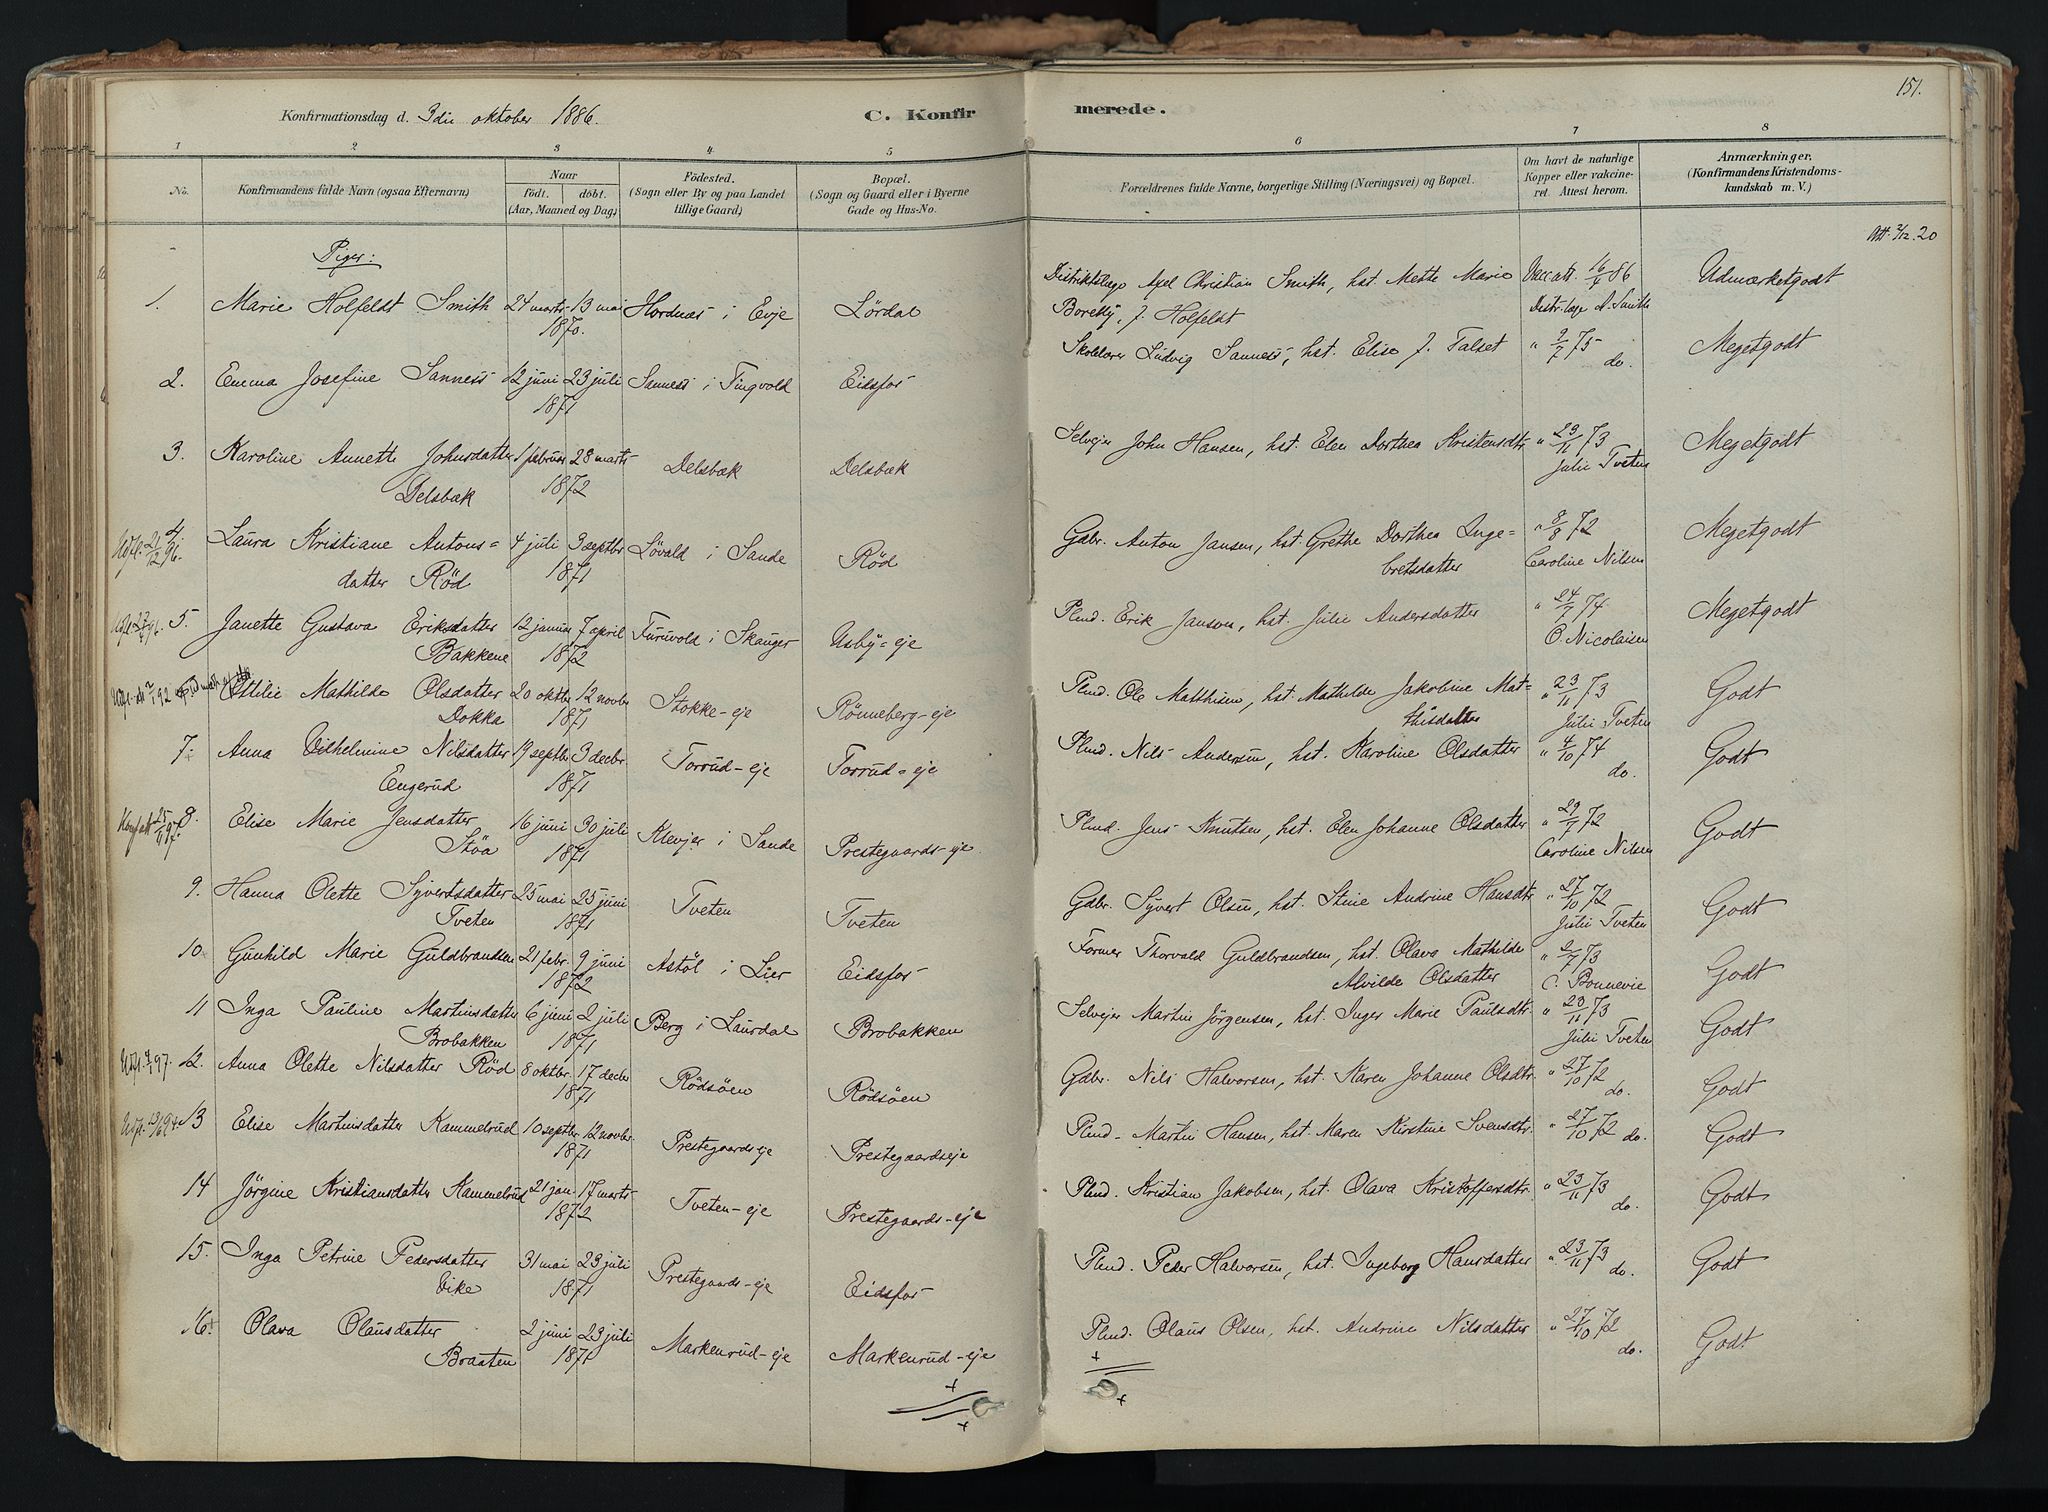 151.
Konfirmationsdag d. 3die oktober 1886.
C. Konfirmerede.
1 2 3 4 5 6 7 8
No. Konfirmandens fulde Navn (ogsaa Efternavn) Naar födt. döbt. (Aar, Maaned og Dag) Födested. (Sogn eller By og paa Landet tillige Gaard) Bopæl. (Sogn og Gaard eller i Byerne Gade og Hus-No. Forældrenes fulde Navne, borgerlige Stilling (Næringsvei) og Bopæl. Om havt de naturlige Kopper eller vakcineret. Attest herom. Anmærkninger. (Konfirmandens Kristendomskundskab m. V.)
Att. 2/12. 20
Piger:
1. Marie Holfeldt Smith 24 marts 13 mai 1870. Hordnæs i Evje Lördal Distriktslæge Axel Christian Smith, hst. Mette Marie Boretty, f. Holfeldt Vacc att. 16/4 86 Distr. læge A. Smith Udmærketgodt
2. Emma Josefine Sanness 12 juni 23 juli 1871 Sanness i Tingvold Eidsfos Skolelærer Ludvig Sanness, hst. Elise J. Talset " 9/7 75 do. Megetgodt
3. Karoline Annette Johnsdatter Delsbæk 1 februar 28 marts 1872 Delsbæk Delsbæk Selvejer John Hansen, hst. Elen Dorthea Kristensdtr " 23/11 73 Julie Tveten Megetgodt
Udfl. 21/12 96. 4 Laura Kristiane Antons=datter Röd 4 juli 3 septbr 1871 Lövald i Sande Röd Gdbr. Anton Jansen, hst. Grethe Dorthea Inge=bretsdatter " 8/8 72 Caroline Nilsen Megetgodt
5. Janette Gustava Eriksdatter Bakkene 12 januar 7 april 1872 Furuvold i Skauger Usby=eje Plmd. Erik Jansen, hst. Julie Andersdatter " 24/7 74 C. Nicolaisen Megetgodt
Ottilie Mathilde Olsdatter Dokka 20 oktbr 12 novbr 1871 Stokke-eje Rönneberg-eje Plmd. Ole Matthisen, hst. Mathilde Jakobine Mat=thisdatter " 23/11 73 Julie Tveten Godt
7. Anna Vilhelmine Nilsdatter Engerud 19 septbr 3 decbr. 1871 Torrud-eje Torrud=eje Plmd. Nils Andersen, hst. Karoline Olsdatter " 4/10 74 do. Godt
Konf att 25/11 97. 8. Elise Marie Jensdatter Stöa 16 juni 30 juli 1871 Klevjer i Sande Prestegaards-eje Plmd. Jens Knutsen, hst. Elen Johanne Olsdatter " 29/7 72 Caroline Nilsen Godt
9. Hanna Olette Syvertsdatter Tveten 25 mai 25 juni 1871 Tveten Tveten Gdbr. Syvert Olsen, hst. Stine Andrine Hansdtr " 27/10 72 Julie Tveten Godt
10. Gunhild Marie Guldbrandsen 21 febr. 9 juni 1872 Astöl i Lier Eidsfos Former Thorvald Guldbrandsen, hst. Olava Mathilde Alvilde Olsdatter " 2/7 73 C. Bonnevie Godt
11 Inga Pauline Martinsdatter Brobakken 6 juni 2 juli 1871 Berg i Laurdal Brobakken Selvejer Martin Jörgensen, hst. Inger Marie Paulsdtr. " 23/11 73 Julie Tveten Godt
12. Anna Olette Nilsdatter Röd 8 oktbr. 17 decbr 1871 Rödsöen Rödsöen Gdbr. Nils Halvorsen, hst. Karen Johanne Olsdtr. " 27/10 72 do. Godt
13 Elise Martinsdatter Kammelrud 10 septbr 12 novbr. 1871 Prestegaardseje Prestegaardseje Plmd. Martin Hansen, hst. Maren Kirstine Svensdtr. " 27/10 72 do. Godt
14 Jörgine Kristiansdatter Kammelrud 21 jan. 17 marts 1872 Tveten-eje Prestegaards-eje Plmd. Kristian Jakobsen, hst. Olava Kristoffersdtr. " 23/11 73 do. Godt
15. Inga Petrine Pedersdatter Vike 31 mai 23 juli 1871 Prestegaards-eje Eidsfos Plmd. Peder Halvorsen, hst. Ingeborg Hansdatter " 23/11 73 do. Godt
16. Olava Olausdatter Braaten 2 juni 23 juli 1871 Markenrud-eje Markenrud-eje Plmd. Olaus Olsen, hst. Andrine Nilsdatter " 27/10 72 do. Godt